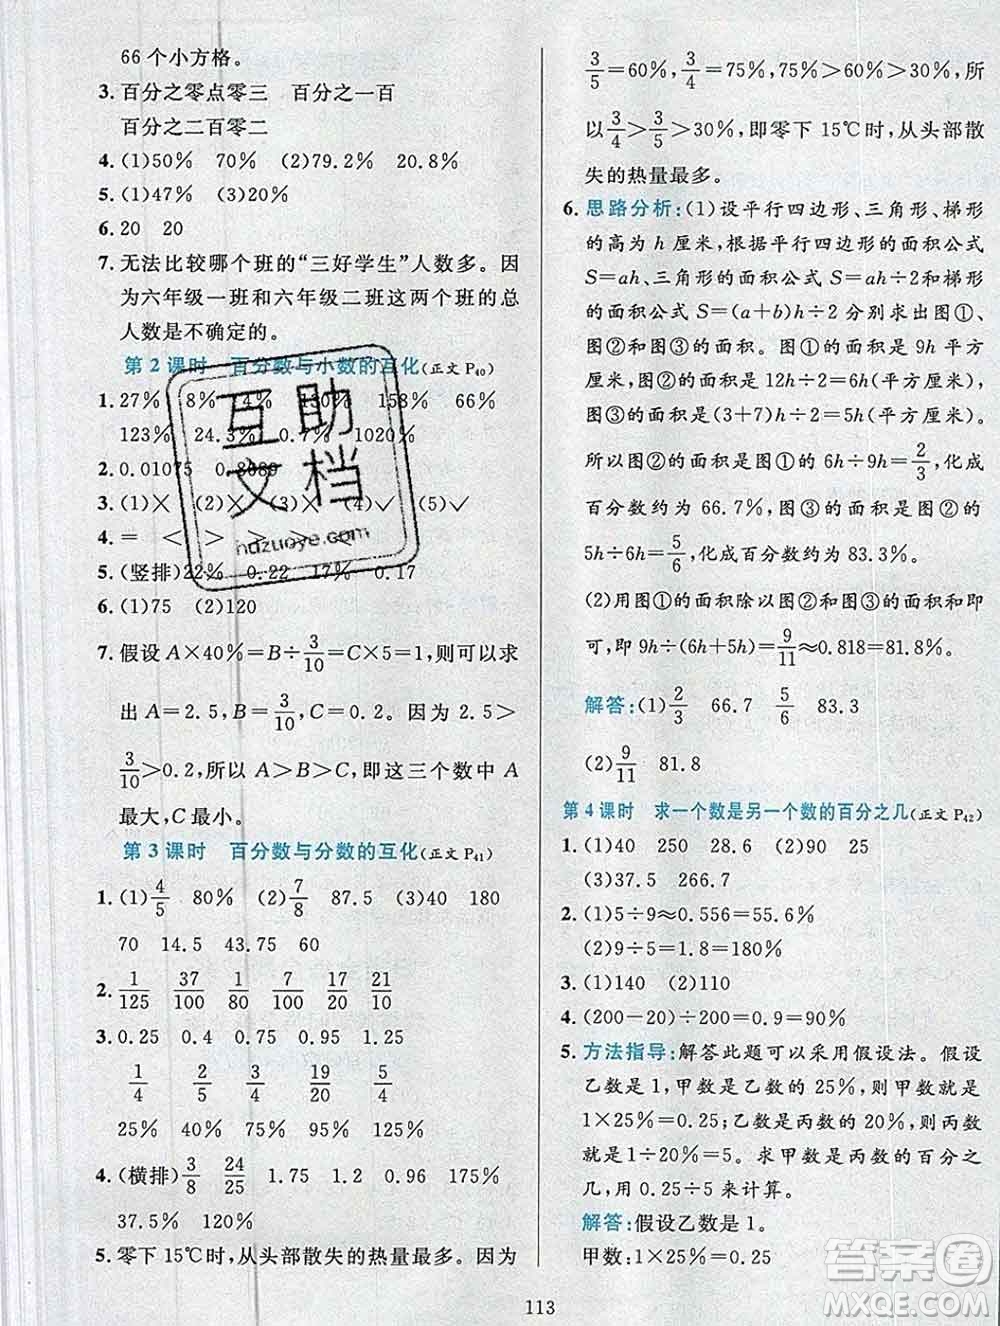 66 个小方格。
3. 百分之零点零三　百分之一百
百分之二百零二
4. (1)50%　70%　(2)79.2%　20.8%
5. (1)47%　(3)20%
6. 20　20
7. 无法比较哪个班的“三好学生”人数多。因
为六年级一班和六年级二班这两个班的总
人数是不确定的。
第 2 课时　百分数与小数的互化(正文 P₄₀)
1. 27%　8%　4%　130%　158%　66%
123%　24.3%　0.7%　1020%
2. 0.01075　0.8089
3. (1)×　(2)×　(3)×　(4)✓　(5)✓
4. =　<　>　>　>
5. (竖排)22%　0.22　17%　0.17
6. (1)75　(2)120
7. 假设 A×40%=B÷3/10=C×5=1，则可以求
出 A=2.5，B=3/10，C=0.2。因为 2.5>
3/10>0.2，所以 A>B>C，即这三个数中 A
最大，C 最小。
第 3 课时　百分数与分数的互化(正文 P₄₁)
1. (1)4/5　80%　(2)7/8　87.5　(3)2　40　180
70　14.5　43.75　60
2. 1/125　37/100　1/80　7/100　17/20　21/10
3. 0.25　0.4　0.75　0.95　1.25
1/4　2/5　3/4　19/20　5/4
25%　40%　75%　95%　125%
4. (横排)3/8　24/25　1.75　1.2　0.96　175%
37.5%　120%
5. 零下 15℃时，从头部散失的热量最多。因为
3/5=60%，3/4=75%，75%>60%>30%，所
以3/4>3/5>30%，即零下 15℃时，从头部散
失的热量最多。
6. 思路分析：(1)设平行四边形、三角形、梯形
的高为 h 厘米，根据平行四边形的面积公式
S=ah、三角形的面积公式 S=ah÷2和梯形
的面积公式 S=(a+b)h÷2 分别求出图①、
图②和图③的面积。图①的面积是 9h 平方
厘米，图②的面积是 12h÷2=6h(平方厘米)，
图③的面积是(3+7)h÷2=5h(平方厘米)。
所以图②的面积是图①的 6h÷9h=2/3，化成
百分数约是 66.7%；图③的面积是图②的
5h÷6h=5/6，化成百分数约是 83.3%。
(2)用图①的面积除以图②和图③的面积和即
可，即 9h÷(6h+5h)=9/11≈0.818=81.8%。
解答：(1)2/3　66.7　5/6　83.3
(2)9/11　81.8
第 4 课时　求一个数是另一个数的百分之几(正文 P₄₂)
1. (1)40　250　28.6　(2)90　25
(3)37.5　266.7
2. (1)5÷9≈0.556=55.6%
(2)9÷5=1.8=180%
3. (1)140　(2)110
4. (200−20)÷200=0.9=90%
5. 方法指导：解答此题可以采用假设法。假设
乙数是 1，甲数是乙数的 25%，则甲数是
1×25%=0.25；乙数是丙数的 20%，则丙数
是 1÷20%=5。求甲数是丙数的百分之
几，用 0.25÷5 来计算。
解答：假设乙数是 1。
甲数：1×25%=0.25
113
互助
文档
hdzuoye.com
答案圈
MXQE.COM